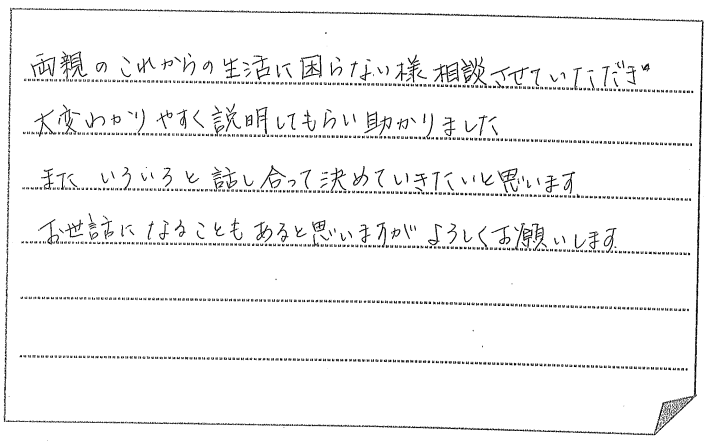 両親のこれからの生活に困らない様相談させていただき
大変わかりやすく説明してもらい助かりました
また いろいろと話し合って決めていきたいと思います
お世話になることもあると思いますが よろしくお願いします